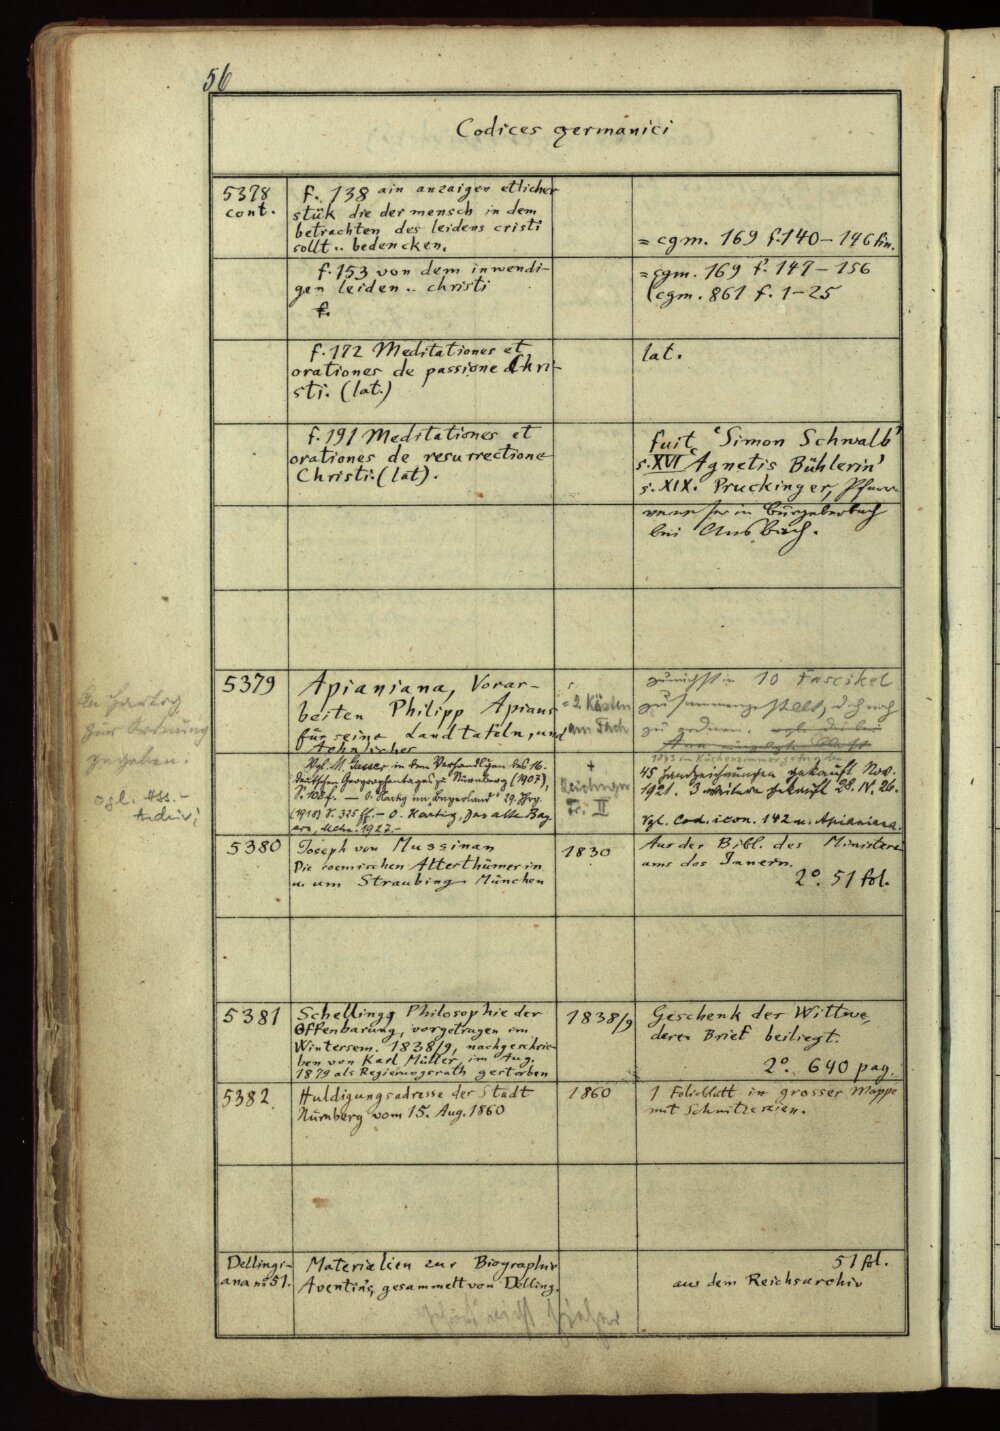 56
Codices germanici
5378
cont.
f. 138 ain anzaigen etlicher
stük die der mensch in dem
betrachten des leidens cristi
sollt.. bedencken.
= cgm. 169 f. 140-146 fin.
f. 153 von dem inwendi-
gen leiden.. christi
= cgm. 169 f. 147-156
cgm. 861 f. 1-25
f. 172 Meditationes et
orationes de passione Chri-
sti. (lat.)
lat.
f. 191 Meditationes et
orationes de resurrectione
Christi. (lat).
fuit 'Simon Schwalb'
s. XVI 'Agnetis Bühlerin'
s. XIX. Pruckinger, Pfarr-
verweser in Burgoberbach
bei Ansbach.
5379
Apianiana, Vorar-
beiten Philipp Apians
für seine Landtafeln, und
Aehnliches
= 2 Kästen
am Fach
zunächst in 10 Fascikel
zusammengestellt, doch noch
zu ordnen.
An Hartig
zur Ordnung
gegeben.
vgl. Hss.-
Archiv!
Vgl. M. Gasser in den Verhandlungen des 16.
deutschen Geographentages zu Nürnberg (1907),
S. 102 f. — O. Hartig im "Bayerland" 29. Jhrg.
(1918) S. 325 ff. - O. Hartig, Das alte Bay-
ern, Mchn. 1927.-
+
Zeichnungen
Fr. II
45 Handzeichnungen gekauft Nov.
1921. 3 weitere gekauft 28. IV. 26.
Vgl. Cod. icon. 142 u. Apianiana.
5380
Joseph von Mussinan
Die roemischen Alterthümer in
u. um Straubing. München
1830
Aus der Bibl. des Ministeri-
ums des Innern.
2°. 51 fol.
5381
Schellings Philosophie der
Offenbarung, vorgetragen im
Wintersem. 1838/9, nachgeschrie-
ben von Karl Müller, im Aug.
1879 als Regierungsrath gestorben
1838/9
Geschenk der Wittwe,
deren Brief beiliegt.
2°. 640 pag.
5382
Huldigungsadresse der Stadt
Nürnberg vom 15. Aug. 1860
1860
1 Folioblatt in grosser Mappe
mit Schnitzereien.
Dellingi-
ana n° 51.
Materialien zur Biographie
Aventins, gesammelt von Delling.
51 fol.
aus dem Reichsarchiv